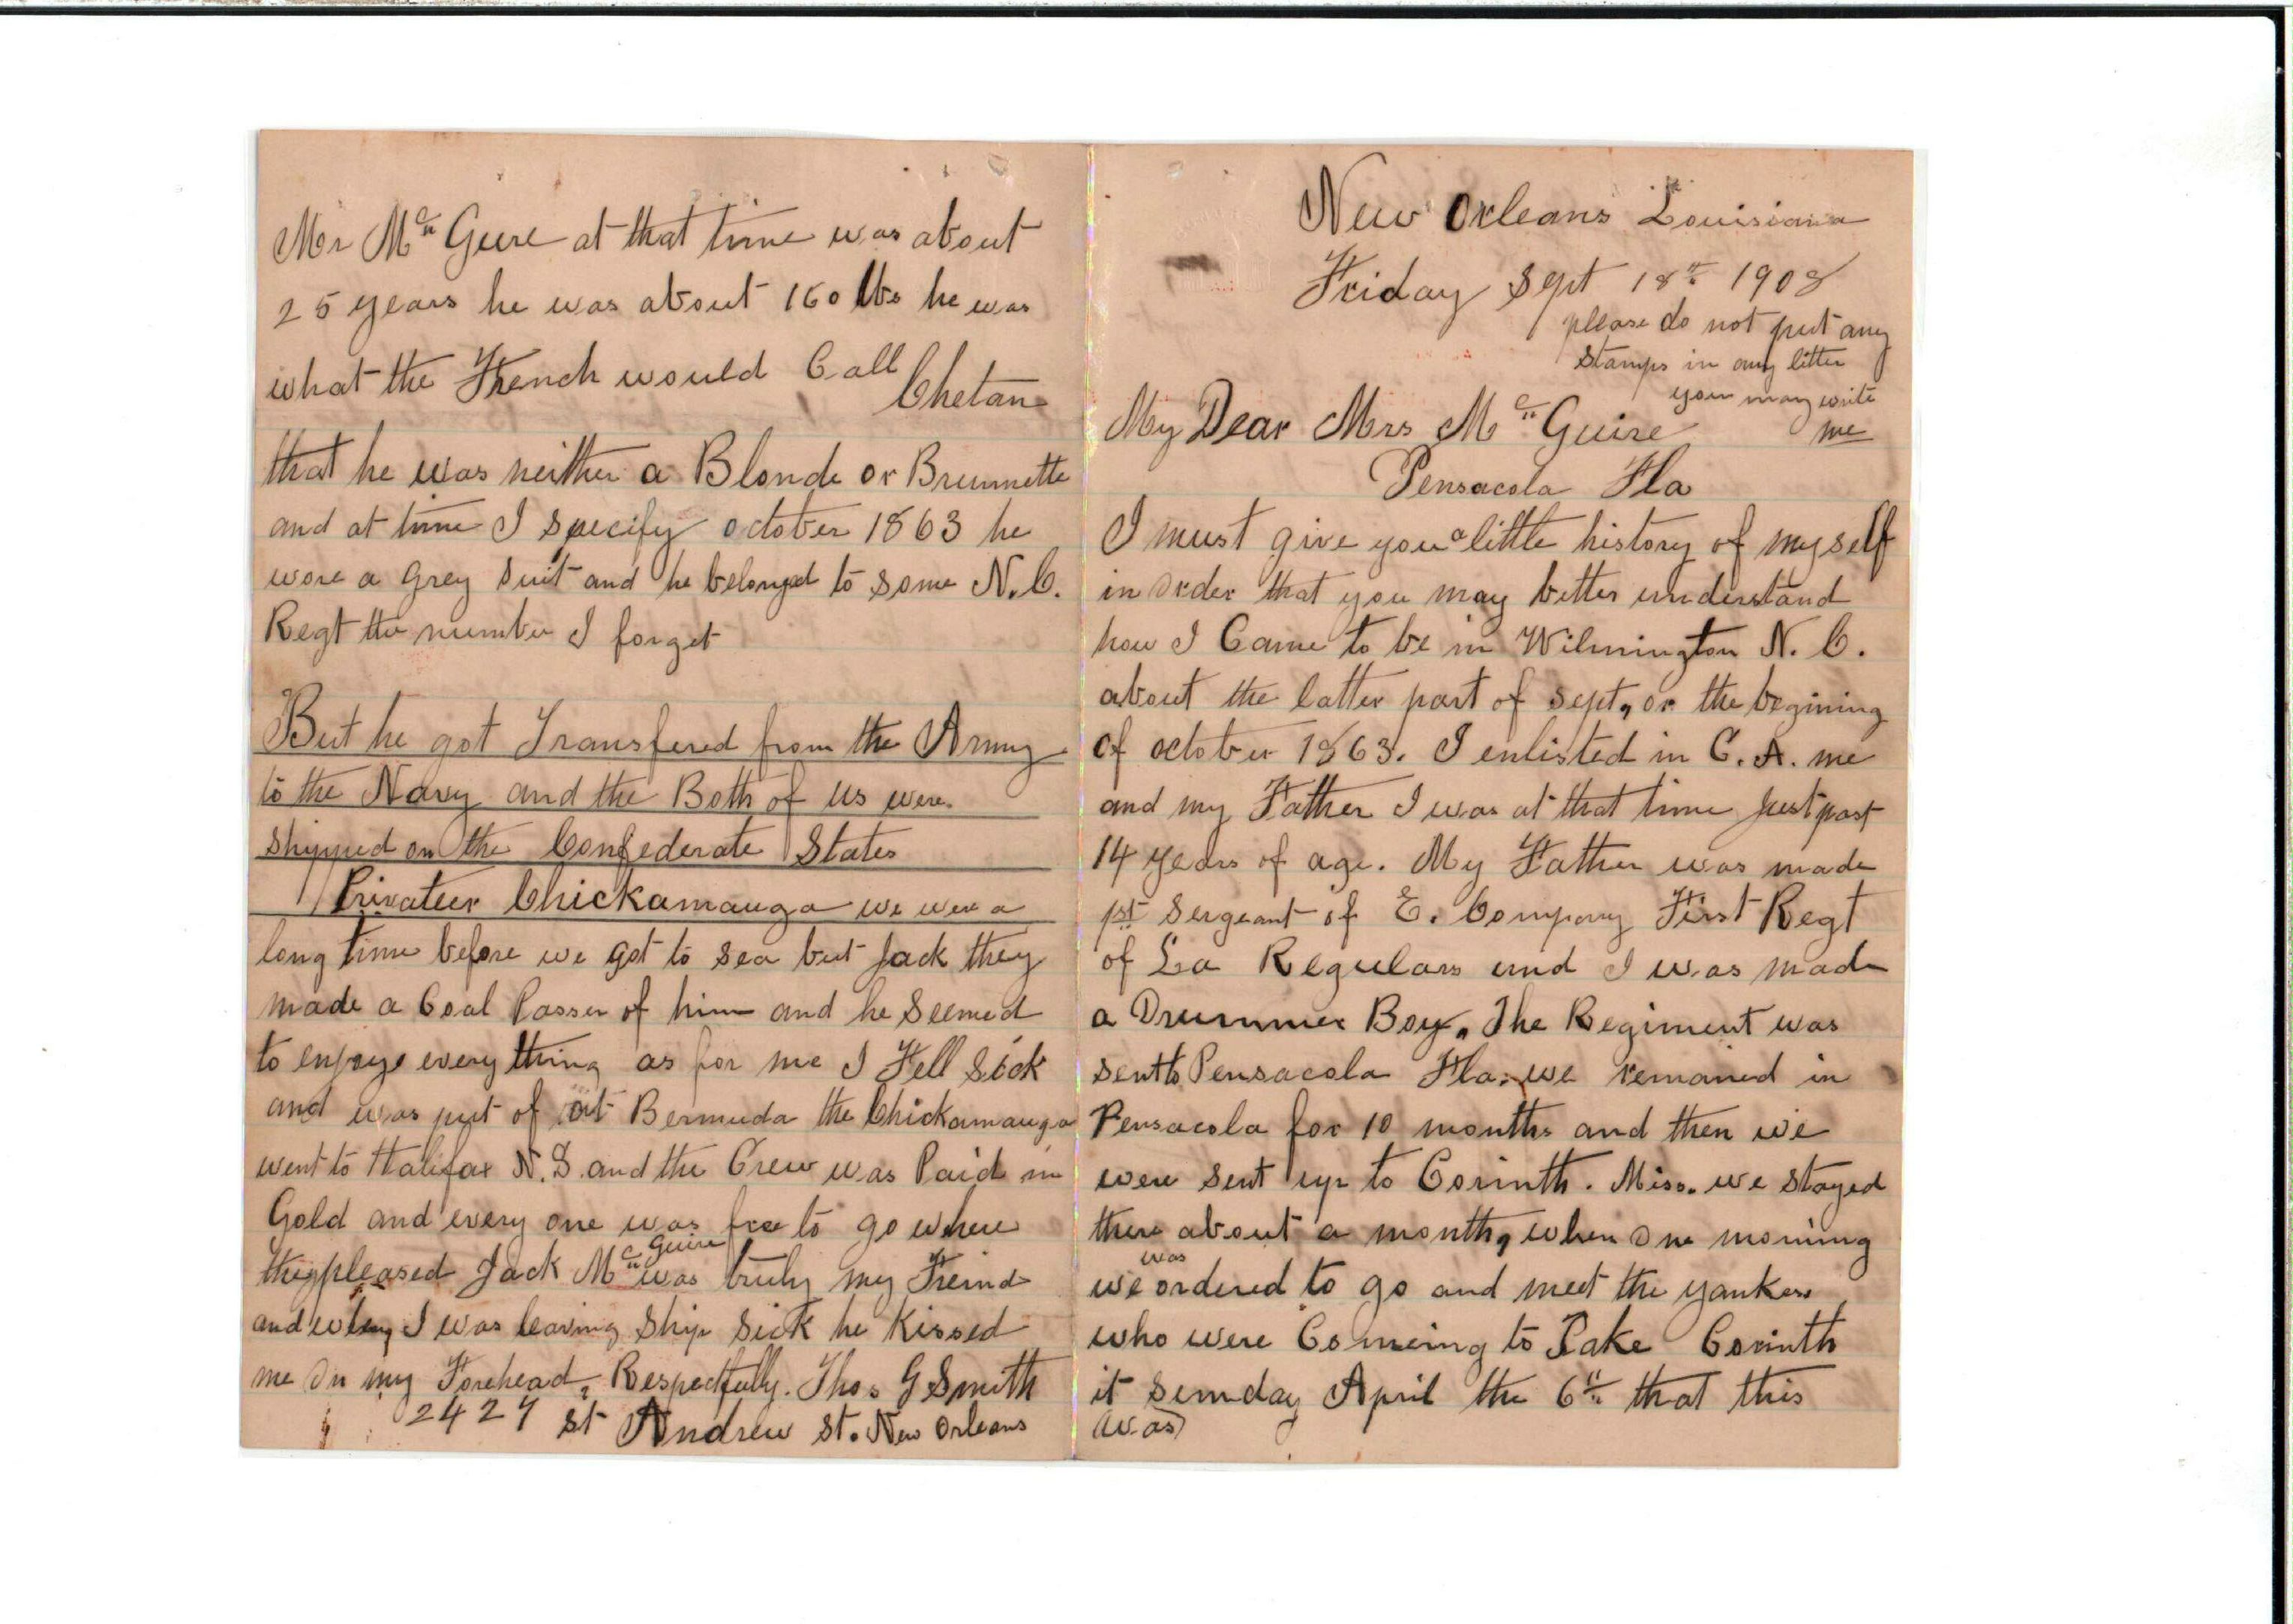 New Orleans Louisiana
Friday Sept 18th 1908
please do not put any
stamps in any litter
you may write
me
My Dear Mrs McGuire
Pensacola Fla
I must give you a little history of myself
in order that you may better understand
how I Came to be in Wilmington N. C.
about the latter part of Sept, or the begining
of october 1863. I enlisted in C. A. me
and my Father I was at that time Just past
14 years of age. My Father was made
1st Sergeant of E. Company First Regt
of La Regulars and I was made
a Drummer Boy. The Regiment was
sent to Pensacola Fla. we remained in
Pensacola for 10 months and then we
were sent up to Corinth. Miss. we stayed
there about a month, when one morning
we was ordered to go and meet the yankees
who were Comeing to Take Corinth
it sunday April the 6th that this
(was)
Mr McGuire at that time was about
25 years he was about 160 lbs he was
what the French would Call
Chetan
that he was neither a Blonde or Brunnette
and at time I specify october 1863 he
wore a grey suit and he belonged to some N.C.
Regt the number I forget
But he got Transfered from the Army
to the Navy and the Both of us were
shipped on the Confederate States
Privateer Chickamauga we were a
long time before we got to sea but Jack they
made a Coal Passer of him and he seemed
to enjoye everything as for me I Fell Sick
and was put of at Bermuda the Chickamauga
went to Halifax N.S. and the Crew was Paid in
Gold and every one was free to go where
they pleased Jack McGuire was truly my Freind
and when I was leaving ship sick he kissed
me on my Forehead, Respectfully. Thos G Smith
2427 St Andrew St. New Orleans